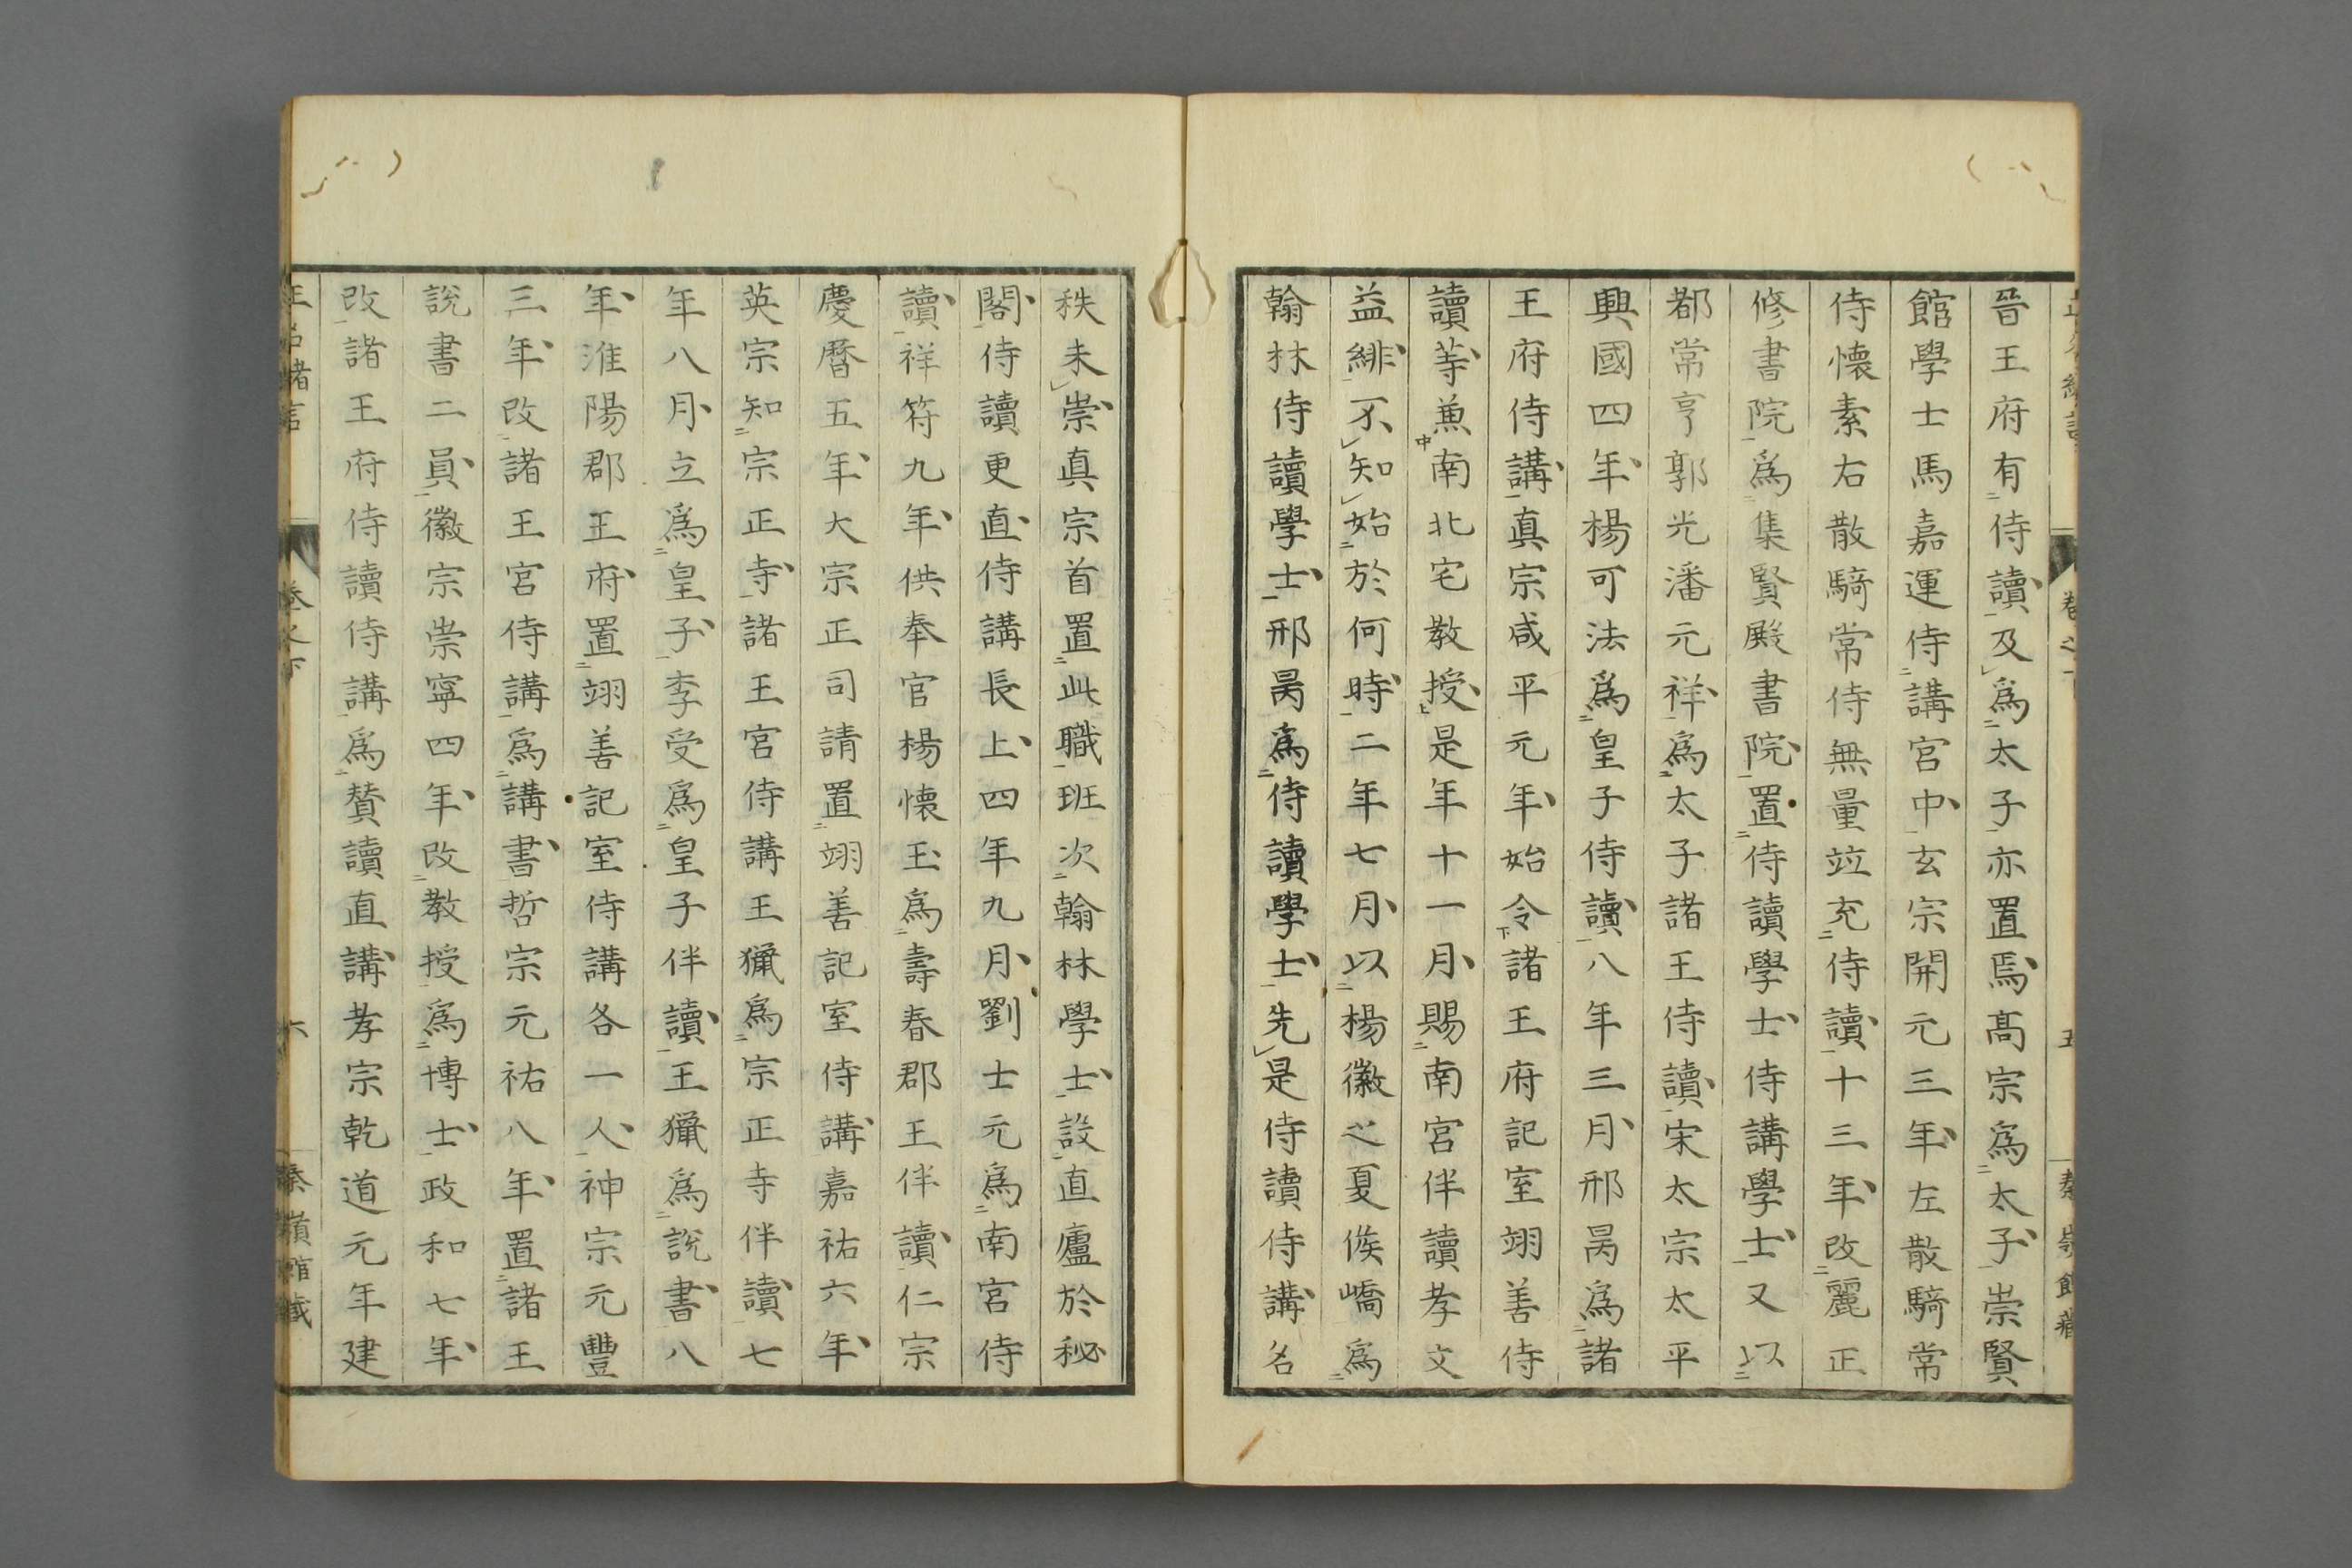 晉王府有侍讀及爲太子亦置焉高宗爲太子崇賢
館學士馬嘉運侍講宮中玄宗開元三年左散騎常
侍懷素右散騎常侍無量竝充侍讀十三年改麗正
修書院爲集賢殿書院置侍讀學士侍講學士又以
都常亨郭光潘元祥爲太子諸王侍讀宋太宗太平
興國四年楊可法爲皇子侍讀八年三月邢昺爲諸
王府侍講真宗咸平元年始令諸王府記室翊善侍
讀等兼南北宅教授是年十一月賜南宮伴讀孝文
益緋不知始於何時二年七月以楊徽之夏侯嶠爲
翰林侍讀學士邢昺爲侍讀學士先是侍讀侍講名
秩未崇真宗首置此職班次翰林學士設直廬於秘
閣侍讀更直侍講長上四年九月劉士元爲南宮侍
讀祥符九年供奉官楊懷玉爲壽春郡王伴讀仁宗
慶曆五年大宗正司請置翊善記室侍講嘉祐六年
英宗知宗正寺諸王宮侍講王獵爲宗正寺伴讀七
年八月立爲皇子李受爲皇子伴讀王獵爲說書八
年淮陽郡王府置翊善記室侍講各一人神宗元豐
三年改諸王宮侍講爲講書哲宗元祐八年置諸王
說書二員徽宗崇寧四年改教授爲博士政和七年
改諸王府侍讀侍講爲贊讀直講孝宗乾道元年建
卷之下
六